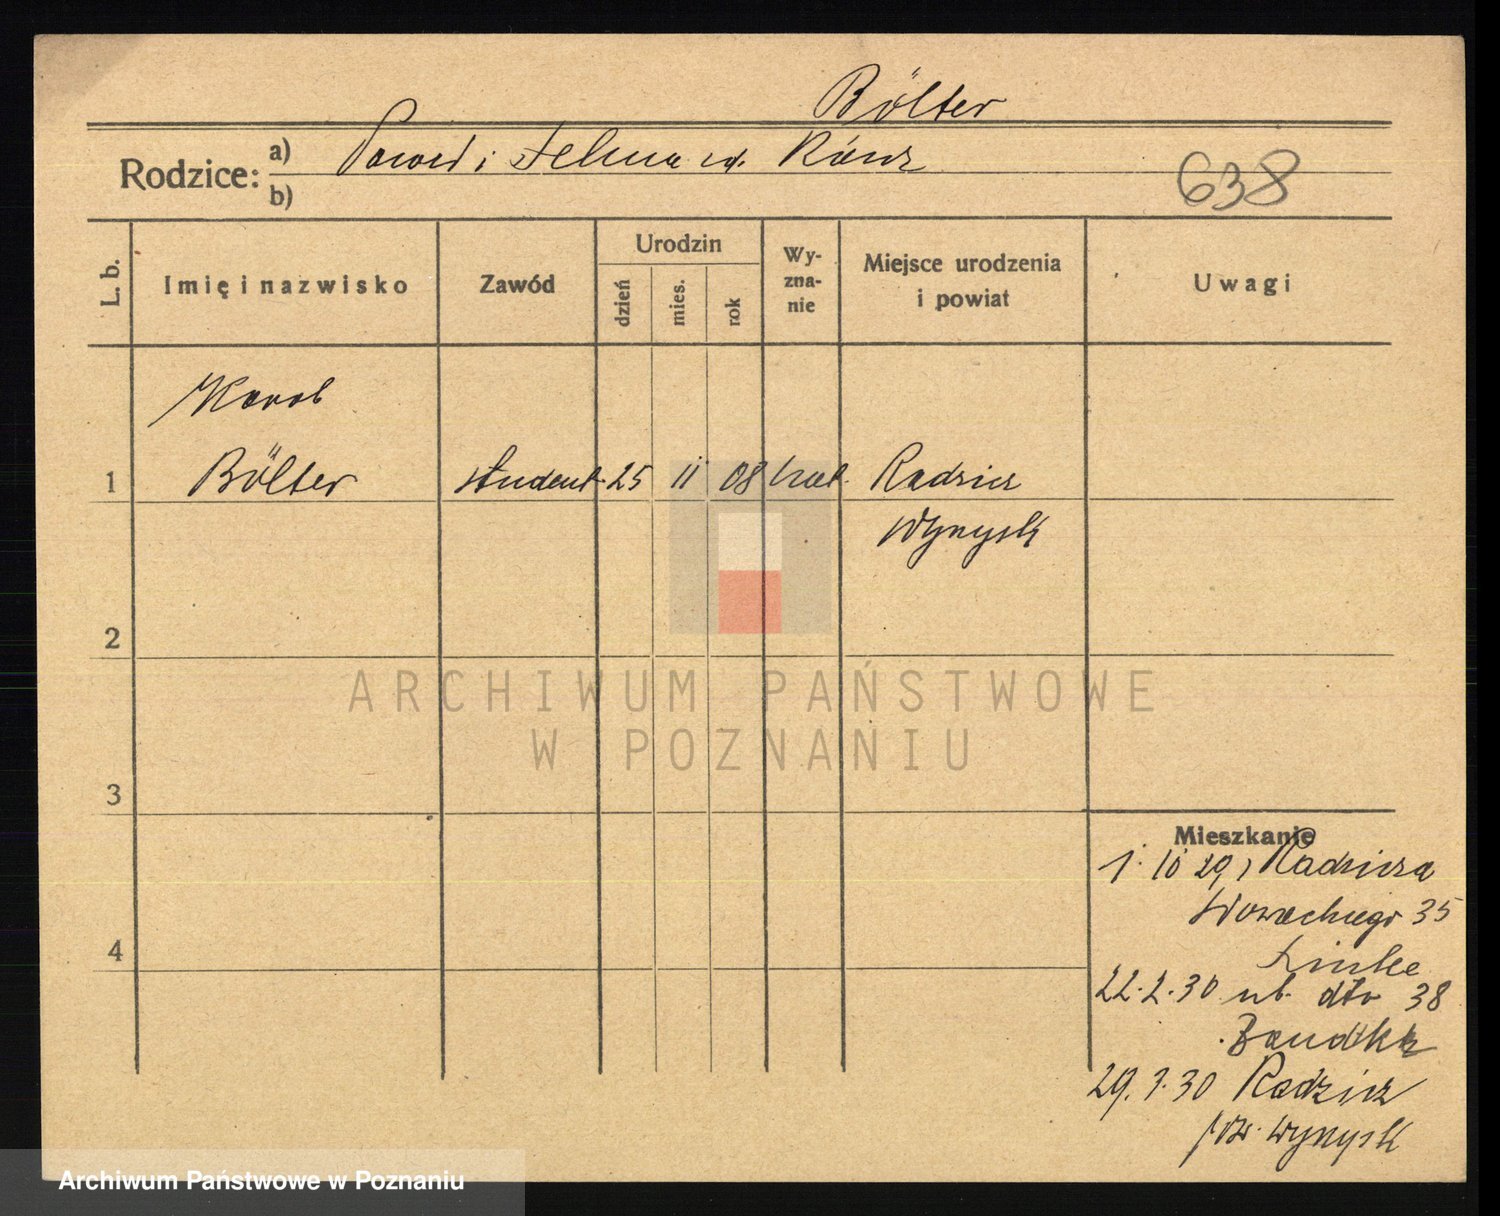 Bölter
Rodzice:
a) Paweł i Selma
b)
638
L. b.
Imię i nazwisko
Zawód
Urodzin
dzień
mies.
rok
Wy-
zna-
nie
Miejsce urodzenia
i powiat
Uwagi
Karol
1 Bölter student 25 11 08 kat. Radzicz
Wyrzysk
2
3
4
Mieszkanie
1. 10 29, Radzicza
35
Linke
22.2.30 ul. dto 38
29.7.30 Radzicz
pow. Wyrzysk
ARCHIWUM PAŃSTWOWE
W POZNANIU
Archiwum Państwowe w Poznaniu